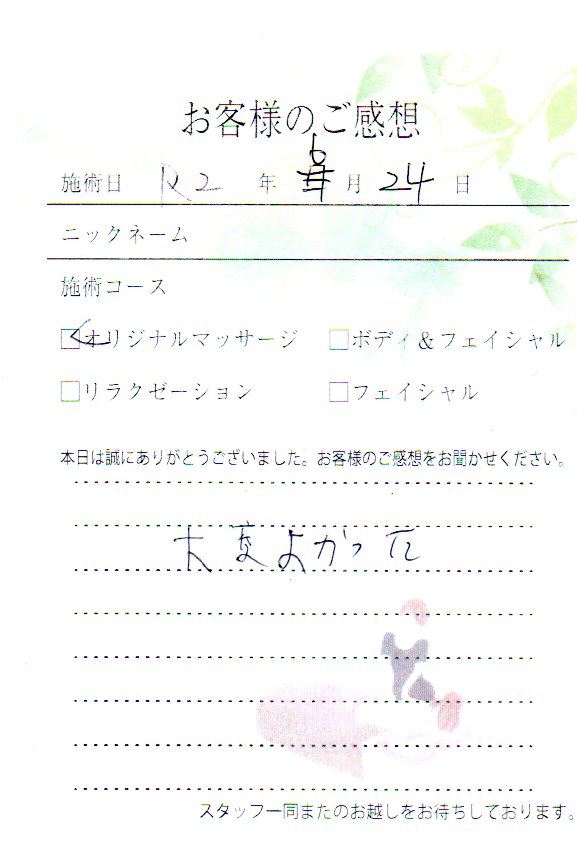 お客様のご感想
施術日 R2 年 6 月 24 日
ニックネーム
施術コース
オリジナルマッサージ □ボディ&フェイシャル
□リラクゼーション □フェイシャル
本日は誠にありがとうございました。お客様のご感想をお聞かせください。
大変よかった
スタッフ一同またのお越しをお待ちしております。